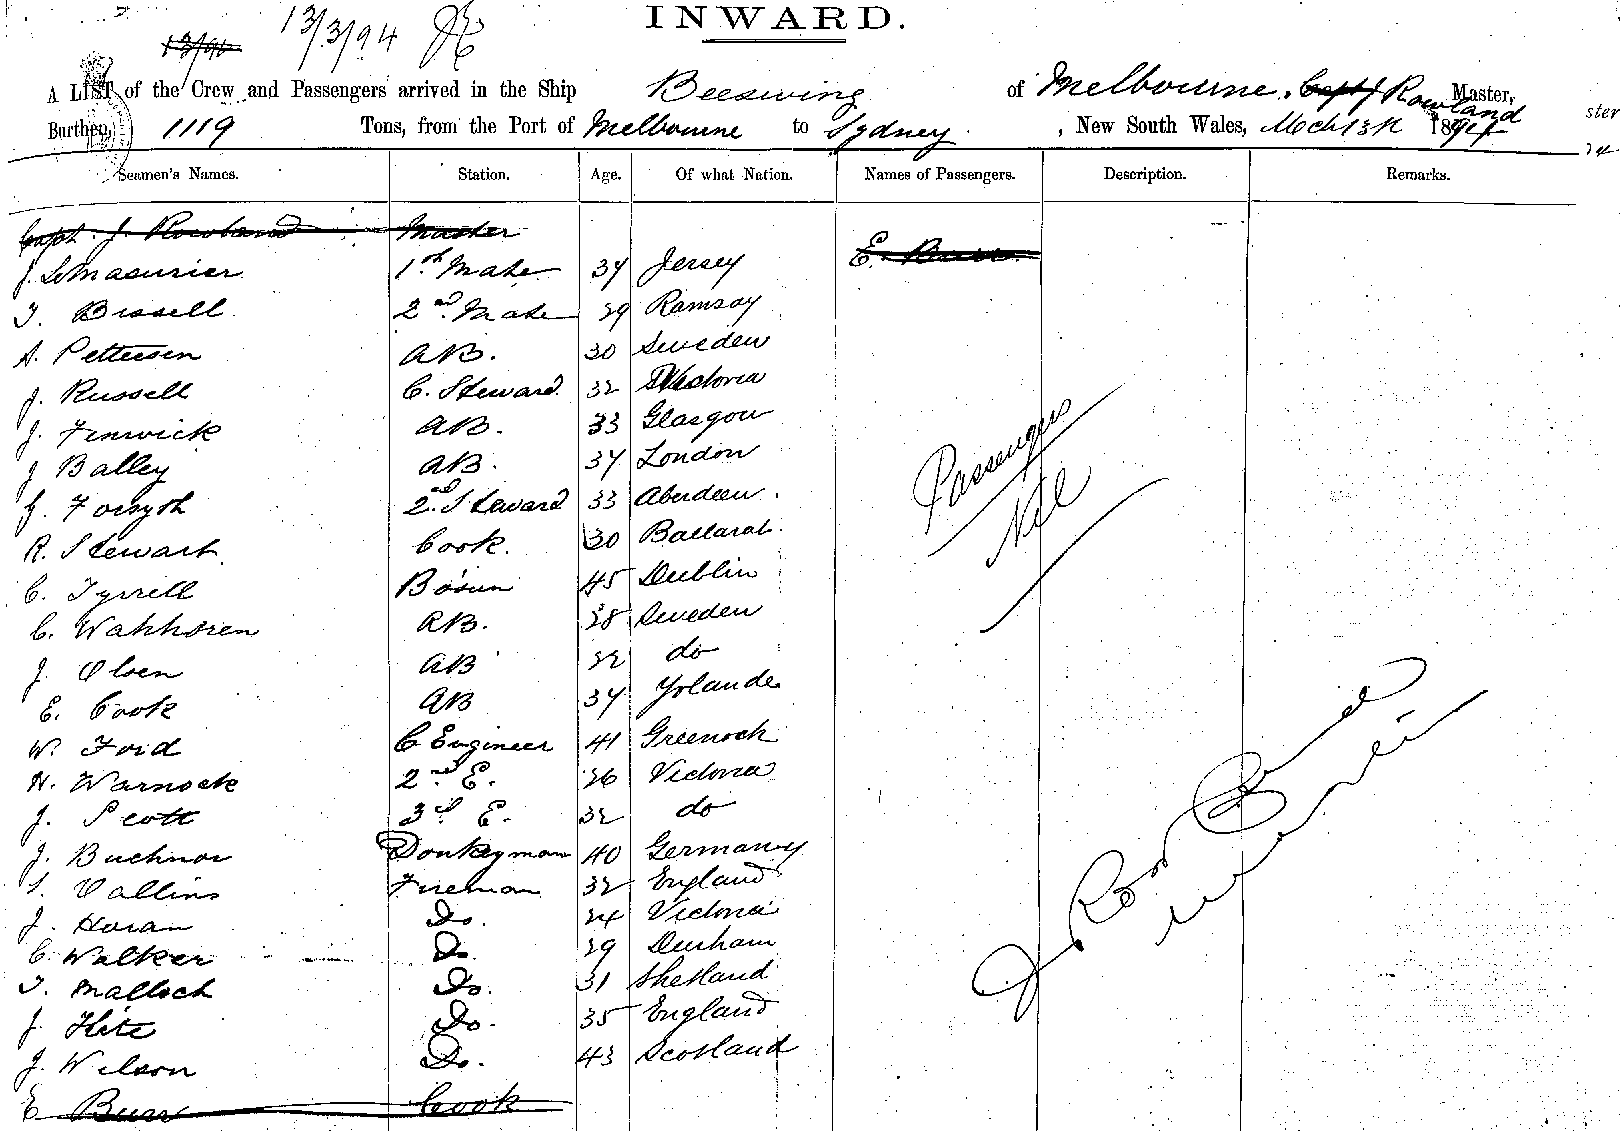 INWARD.
13/94 13/3/94
A LIST of the Crew and Passengers arrived in the Ship Beeswing of Melbourne, Capt J Rowland Master,
Burthen, 1119 Tons, from the Port of Melbourne to Sydney, New South Wales, Mch 13th 1894
Seamen's Names. Station. Age. Of what Nation. Names of Passengers. Description. Remarks.
Capt. J. Rowland Master
J. LeMasurier 1st Mate 34 Jersey E. Burr
T. Bissell 2nd Mate 29 Ramsay
A. Pettersen AB. 30 Sweden
J. Russell C. Steward 32 Victoria
J. Fenwick AB. 33 Glasgow
J Balley AB. 34 London
G. Forsyth 2nd Steward 33 Aberdeen.
R. Stewart Cook. 30 Ballarat.
C. Tyrrell Bosun 45 Dublin
C. Wahhoren AB. 38 Sweden
J. Olsen AB 32 do
E. Cook AB 34 Yolande
W. Ford C Engineer 41 Greenock
H. Warnock 2nd E. 26 Victoria
J. Scott 3rd E. 32 do
J. Buchnor Donkeyman 40 Germany
Vallins Fireman 32 England
J. Horan Do. 24 Victoria
C. Walker Do 29 Durham
T. Malloch Do. 31 Shetland
J. Hite Do. 35 England
J. Wilson Do. 43 Scotland
E Burr Cook
Passengers
Nil
J Rowland
ster
94